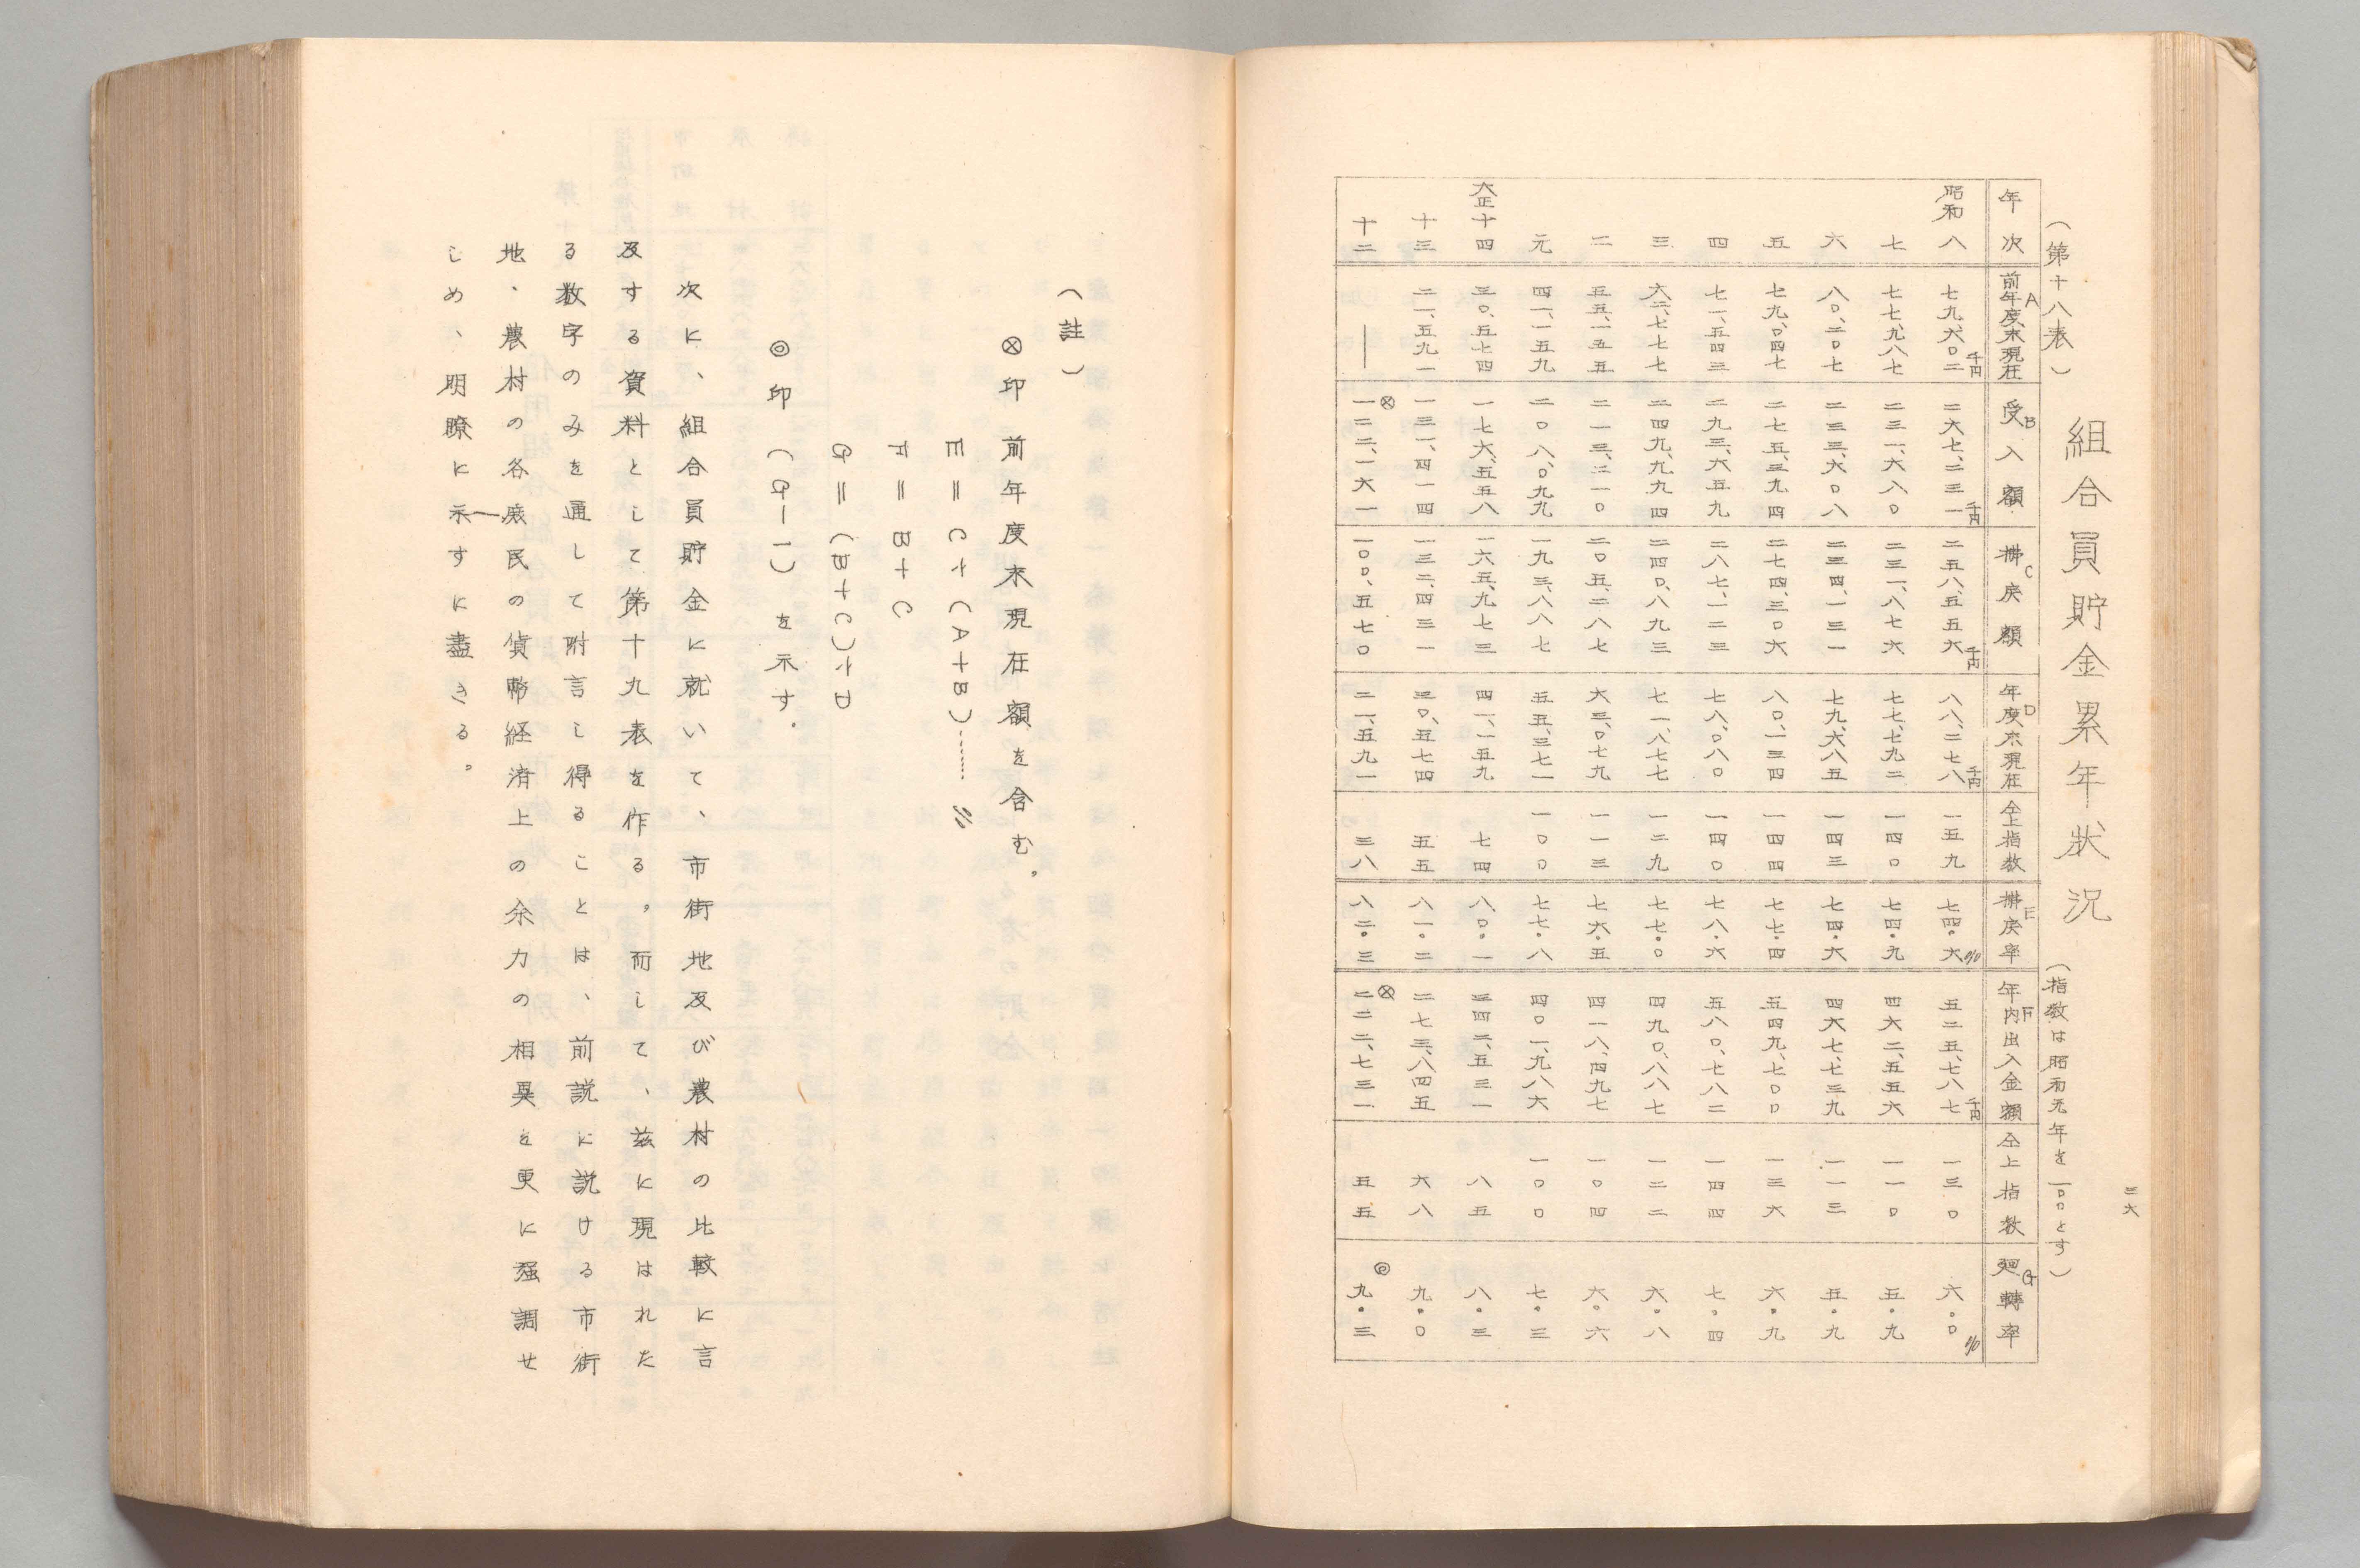 二六
(第十八表) 組合員貯金累年状況 (指数は昭和元年を一〇〇とす)
年次 A前年度末現在 B受入額 C拂戻額 D年度末現在 仝上指数 E拂戻率 F年内出入金額 仝上指数 G廻轉率
昭和八 七九、六〇二千円 二六七、二三一千円 二五八、五五六千円 八八、二七八千円 一五九 七四・六% 五二五、七八七千円 一三〇 六・〇%
七 七七、九八七 二三一、六八〇 二三一、八七六 七七、七九二 一四〇 七四・九 四六二、五五六 一一〇 五・九
六 八〇、二〇七 二三三、六〇八 二三四、一三一 七九、六八五 一四三 七四・六 四六七、七三九 一一三 五・九
五 七九、〇四七 二七五、三九四 二七四、三〇六 八〇、一三四 一四四 七七・四 五四九、七〇〇 一三六 六・九
四 七一、五四三 二九三、六五九 二八七、一二三 七八、〇八〇 一四〇 七八・六 五八〇、七八二 一四四 七・四
三 六二、七七七 二四九、九九四 二四〇、八九三 七一、八七七 一二九 七七・〇 四九〇、八八七 一二二 六・八
二 五五、一五五 二一三、二一〇 二〇五、二八七 六三、〇七九 一一三 七六・五 四一八、四九七 一〇四 六・六
元 四一、一五九 二〇八、〇九九 一九三、八八七 五五、三七一 一〇〇 七七・八 四〇一、九八六 一〇〇 七・三
大正十四 三〇、五七四 一七六、五五八 一六五、九七三 四一、一五九 七四 八〇・一 三四二、五三一 八五 八・三
十三 二一、五九一 一三一、四一四 一三二、四三一 三〇、五七四 五五 八一・二 二七三、八四五 六八 九・〇
十二 ― ⊗一二二、一六一 一〇〇、五七〇 二一、五九一 三八 八二・三 ⊗二二二、七三一 五五 ◎九・三
(註)
⊗印 前年度末現在額を含む。
E=C÷(A+B)……%
F=B+C
G=(B+C)÷D
◎印 (G-1)を示す.
次に、組合員貯金に就いて、市街地及び農村の比較に言
及する資料として第十九表を作る。而して、茲に現はれた
る数字のみを通して附言し得ることは、前説に説ける市街
地、農村の各庶民の貨幣経済上の余力の相異を更に强調せ
しめ、明瞭に示すに盡きる。